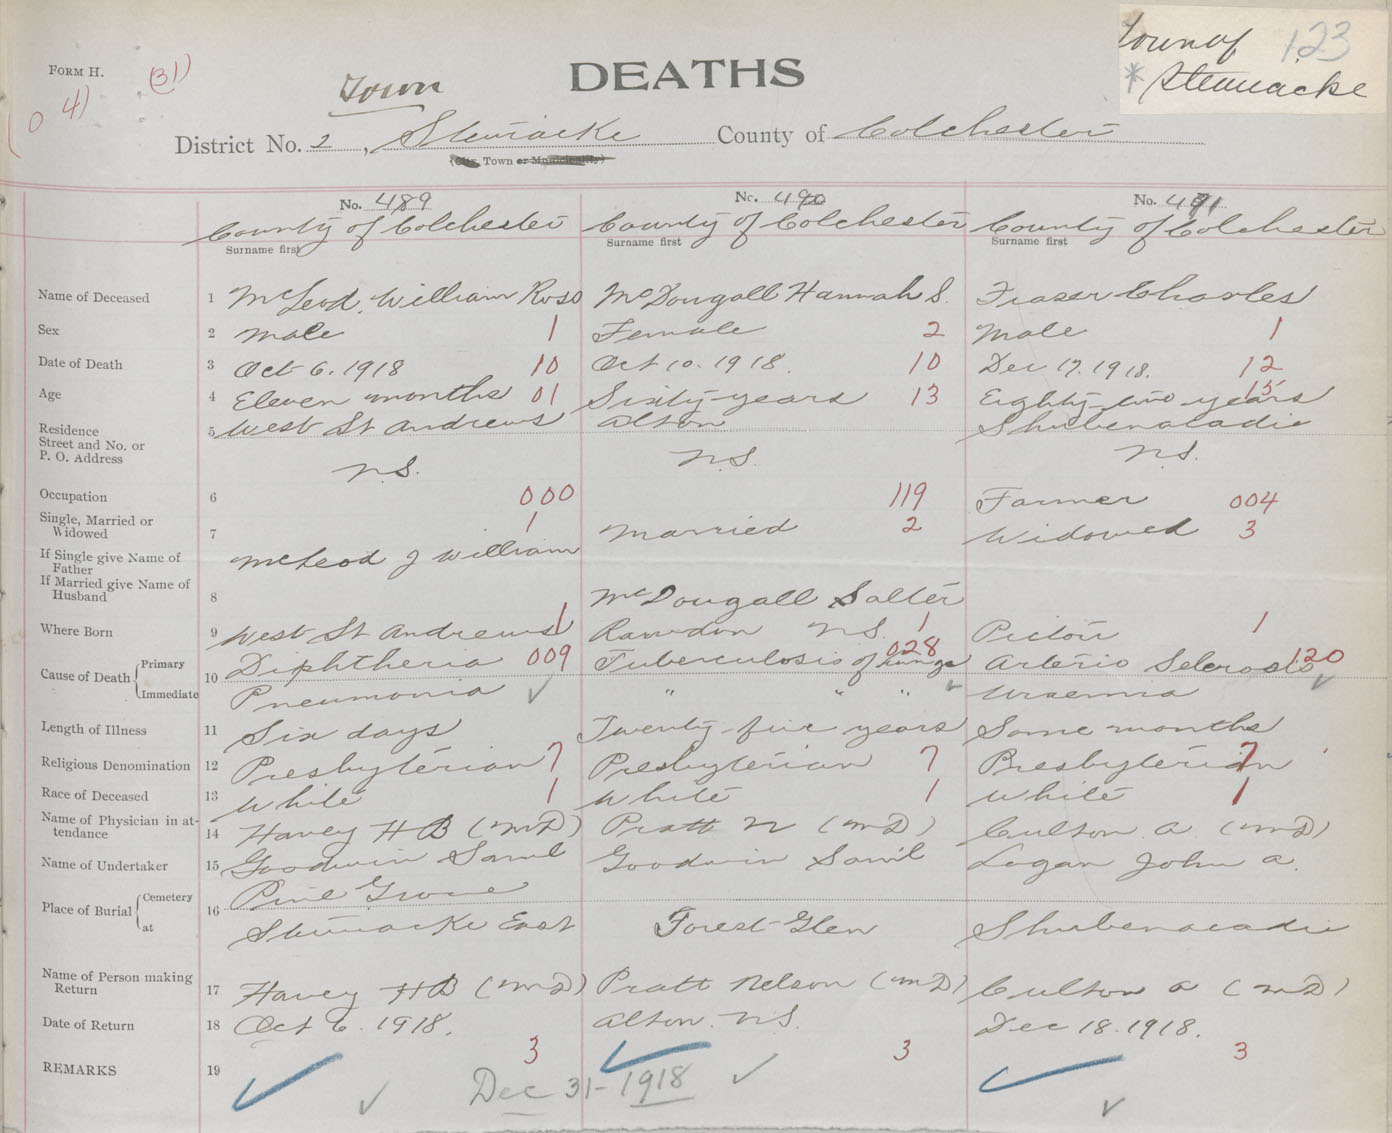 Town of 123
* Stewiacke
FORM H. (31)
(0 4)
Town DEATHS
District No. 2, Stewiacke County of Colchester
(City, Town or Municipality)
No. 489 No. 490 No. 491
County of Colchester County of Colchester County of Colchester
Surname first Surname first Surname first
Name of Deceased 1 McLeod, William Ross McDougall Hannah S. Fraser Charles
Sex 2 male 1 Female 2 Male 1
Date of Death 3 Oct 6. 1918 10 Oct 10. 1918. 10 Dec 17. 1918. 12
Age 4 Eleven months 01 Sixty-years 13 Eighty-two years 15
Residence 5 West St Andrews Alton Shubenacadie
Street and No. or
P. O. Address N.S. N.S. N.S.
Occupation 6 000 119 Farmer 004
Single, Married or
Widowed 7 1 Married 2 Widowed 3
If Single give Name of
Father McLeod J William
If Married give Name of
Husband 8 McDougall Salter
Where Born 9 West St Andrews 1 Rawdon N.S. 1 Pictou 1
Cause of Death { Primary 10 Diphtheria 009 Tuberculosis of lungs 028 Arterio Sclerosis 120
Immediate Pneumonia ✓ " " " ✓ Uraemia ✓
Length of Illness 11 Six days Twenty-five years Some months
Religious Denomination 12 Presbyterian 7 Presbyterian 7 Presbyterian 7
Race of Deceased 13 White 1 White 1 White 1
Name of Physician in at-
tendance 14 Havey H B (M D) Pratt N (M D) Culton A. (M D)
Name of Undertaker 15 Goodwin Saml Goodwin Sam'l Logan John A.
Place of Burial { Cemetery 16 Pine Grove
at Stewiacke East Forest Glen Shubenacadie
Name of Person making
Return 17 Havey H B (M D) Pratt Nelson (M D) Culton A (M D)
Date of Return 18 Oct 6. 1918. Alton. N.S. Dec 18. 1918.
3 3 3
REMARKS 19 ✓ ✓ ✓
✓ Dec 31-1918 ✓ ✓